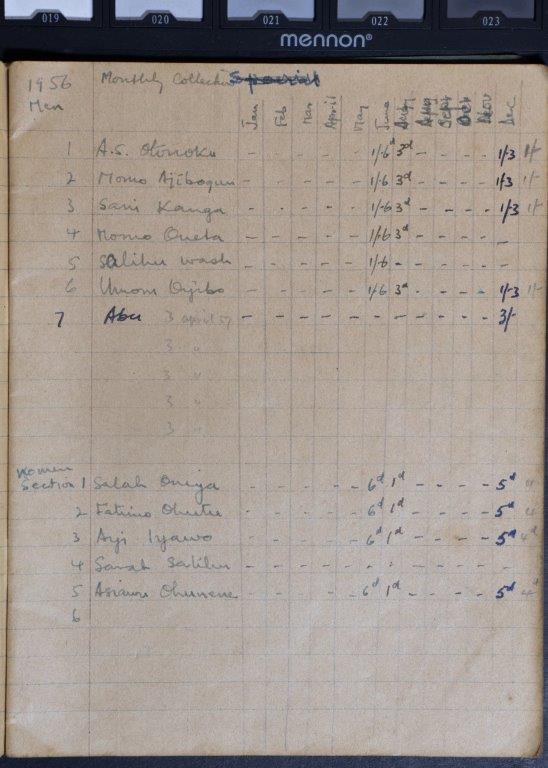 019 020 021 022 023
mennon®
1956 Monthly Collection Special
Men Jan Feb Mar April May June Augy Aug Sept Oct Nov Dec
1 A.S. Otonoku - - - - - 1/-6d 3d - - - - 1/-3 1/-
2 Momo Ajibogun - - - - - 1/-6 3d - - - - 1/-3 1/-
3 Sani Kanga - - - - - 1/-6 3d - - - - 1/-3 1/-
4 Momo Oneta - - - - - 1/-6 3d - - - - -
5 Salihu wash - - - - - 1/-6 - - - - - -
6 - - - - - 1/-6 3d - - - - 1/-3 1/-
7 Abu 3 april 57 - - - - - - - - - - - 3/-
3 "
3 "
3 "
3 "
Women
Section 1 Salah Oniya - - - - - 6d 1d - - - - 5d 4
2 Fatimo - - - - - 6d 1d - - - - 5d 4
3 Ayi Iyawo - - - - - 6d 1d - - - - 5d 4d
4 Sanah Salihu - - - - - - - - - - - -
5 Asiawu Ohunene - - - - - 6d 1d - - - - 5d 4d
6